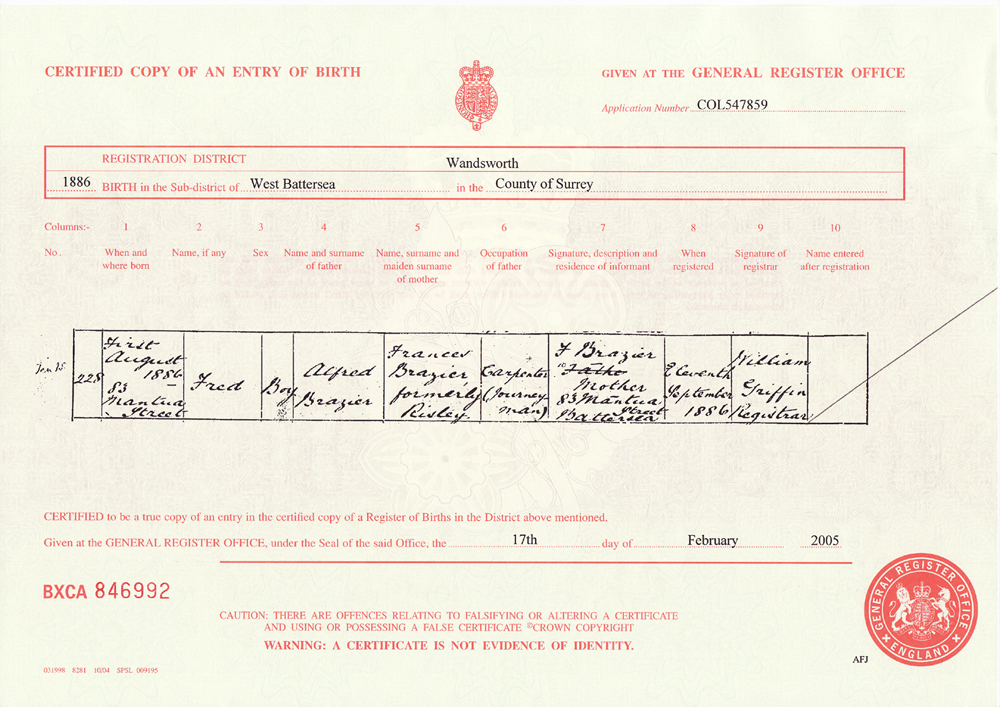 CERTIFIED COPY OF AN ENTRY OF BIRTH
GIVEN AT THE GENERAL REGISTER OFFICE
Application Number COL547859
REGISTRATION DISTRICT Wandsworth
1886 BIRTH in the Sub-district of West Battersea in the County of Surrey
Columns:- 1 2 3 4 5 6 7 8 9 10
No. When and where born Name, if any Sex Name and surname of father Name, surname and maiden surname of mother Occupation of father Signature, description and residence of informant When registered Signature of registrar Name entered after registration
228
First
August
1886
83
Mantua
Street
Fred
Boy
Alfred
Brazier
Frances
Brazier
formerly
Risley
Carpenter
(Journey
man)
F Brazier
Mother
83 Mantua
Street
Battersea
Eleventh
September
1886
William
Griffin
Registrar
CERTIFIED to be a true copy of an entry in the certified copy of a Register of Births in the District above mentioned.
Given at the GENERAL REGISTER OFFICE, under the Seal of the said Office, the 17th day of February 2005
BXCA 846992
CAUTION: THERE ARE OFFENCES RELATING TO FALSIFYING OR ALTERING A CERTIFICATE
AND USING OR POSSESSING A FALSE CERTIFICATE ©CROWN COPYRIGHT
WARNING: A CERTIFICATE IS NOT EVIDENCE OF IDENTITY.
GENERAL REGISTER OFFICE
ENGLAND
AFJ
031998 8281 10/04 SPSL 009195